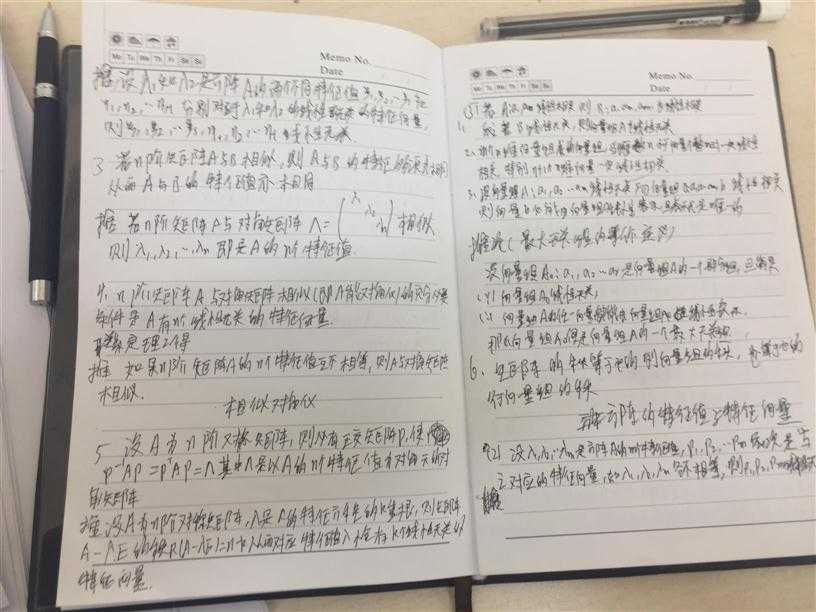 Memo No.
Date
Mo Tu We Th Fr Sa Su
推 设λ1和λ2是方阵A的两个不同特征值 ξ1,ξ2,…ξs和
η1,η2,…ηt 分别对应λ1和λ2的线性无关的特征向量,
则ξ1,ξ2,…ξs,η1,η2,…ηt 线性无关.
3. 若n阶矩阵A与B相似,则A与B的特征多项式相同
从而A与B的特征值亦相同
推 若n阶矩阵A与对角矩阵Λ=(λ1 λ2 λn)相似
则λ1,λ2,…λn即是A的n个特征值.
4. n阶矩阵A与对角矩阵相似(即A能对角化)的充分必要
条件是A有n个线性无关的特征向量.
定理2得
推 如果n阶矩阵A的n个特征值互不相等,则A与对角矩阵
相似.
相似对角化
5 设A为n阶对称矩阵,则必有正交矩阵P,使
P⁻¹AP=PᵀAP=Λ其中Λ是以A的n个特征值为对角元的对
角矩阵
推 设A为n阶对称矩阵,λ是A的特征方程的k重根,则矩阵
A-λE的秩R(A-λE)=n-k从而对应特征值λ恰有k个线性无关的
特征向量.
Memo No.
Date
Mo Tu We Th Fr Sa Su
线性相关 则 线性相关
线性无关,则向量组A线性无关
2.
相关, 特别 n+1个n维向量一定线性相关.
3. 设向量组A:a1,a2…am线性无关 而向量组 线性相关
则向量b 向量组A线性表示,且表示式是唯一的
推论(最大无关组的等价定义)
设向量组A0:a1,a2…ar是向量组A的一个部分组,且满足
(i) 向量组A0线性无关;
(ii) 向量组A的任一向量都能由向量组A0线性表示.
那么向量组A0便是向量组A的一个最大无关组
6. 矩阵的秩等于它的列向量组的秩, 也等于它的
行向量组的秩
方阵的特征值与特征向量
设λ1,λ2…λm是方阵A的m个特征值, P1,P2,…Pm依次是与
之对应的特征向量,如λ1,λ2,λm各不相等,则P1,P2,Pm线性无关